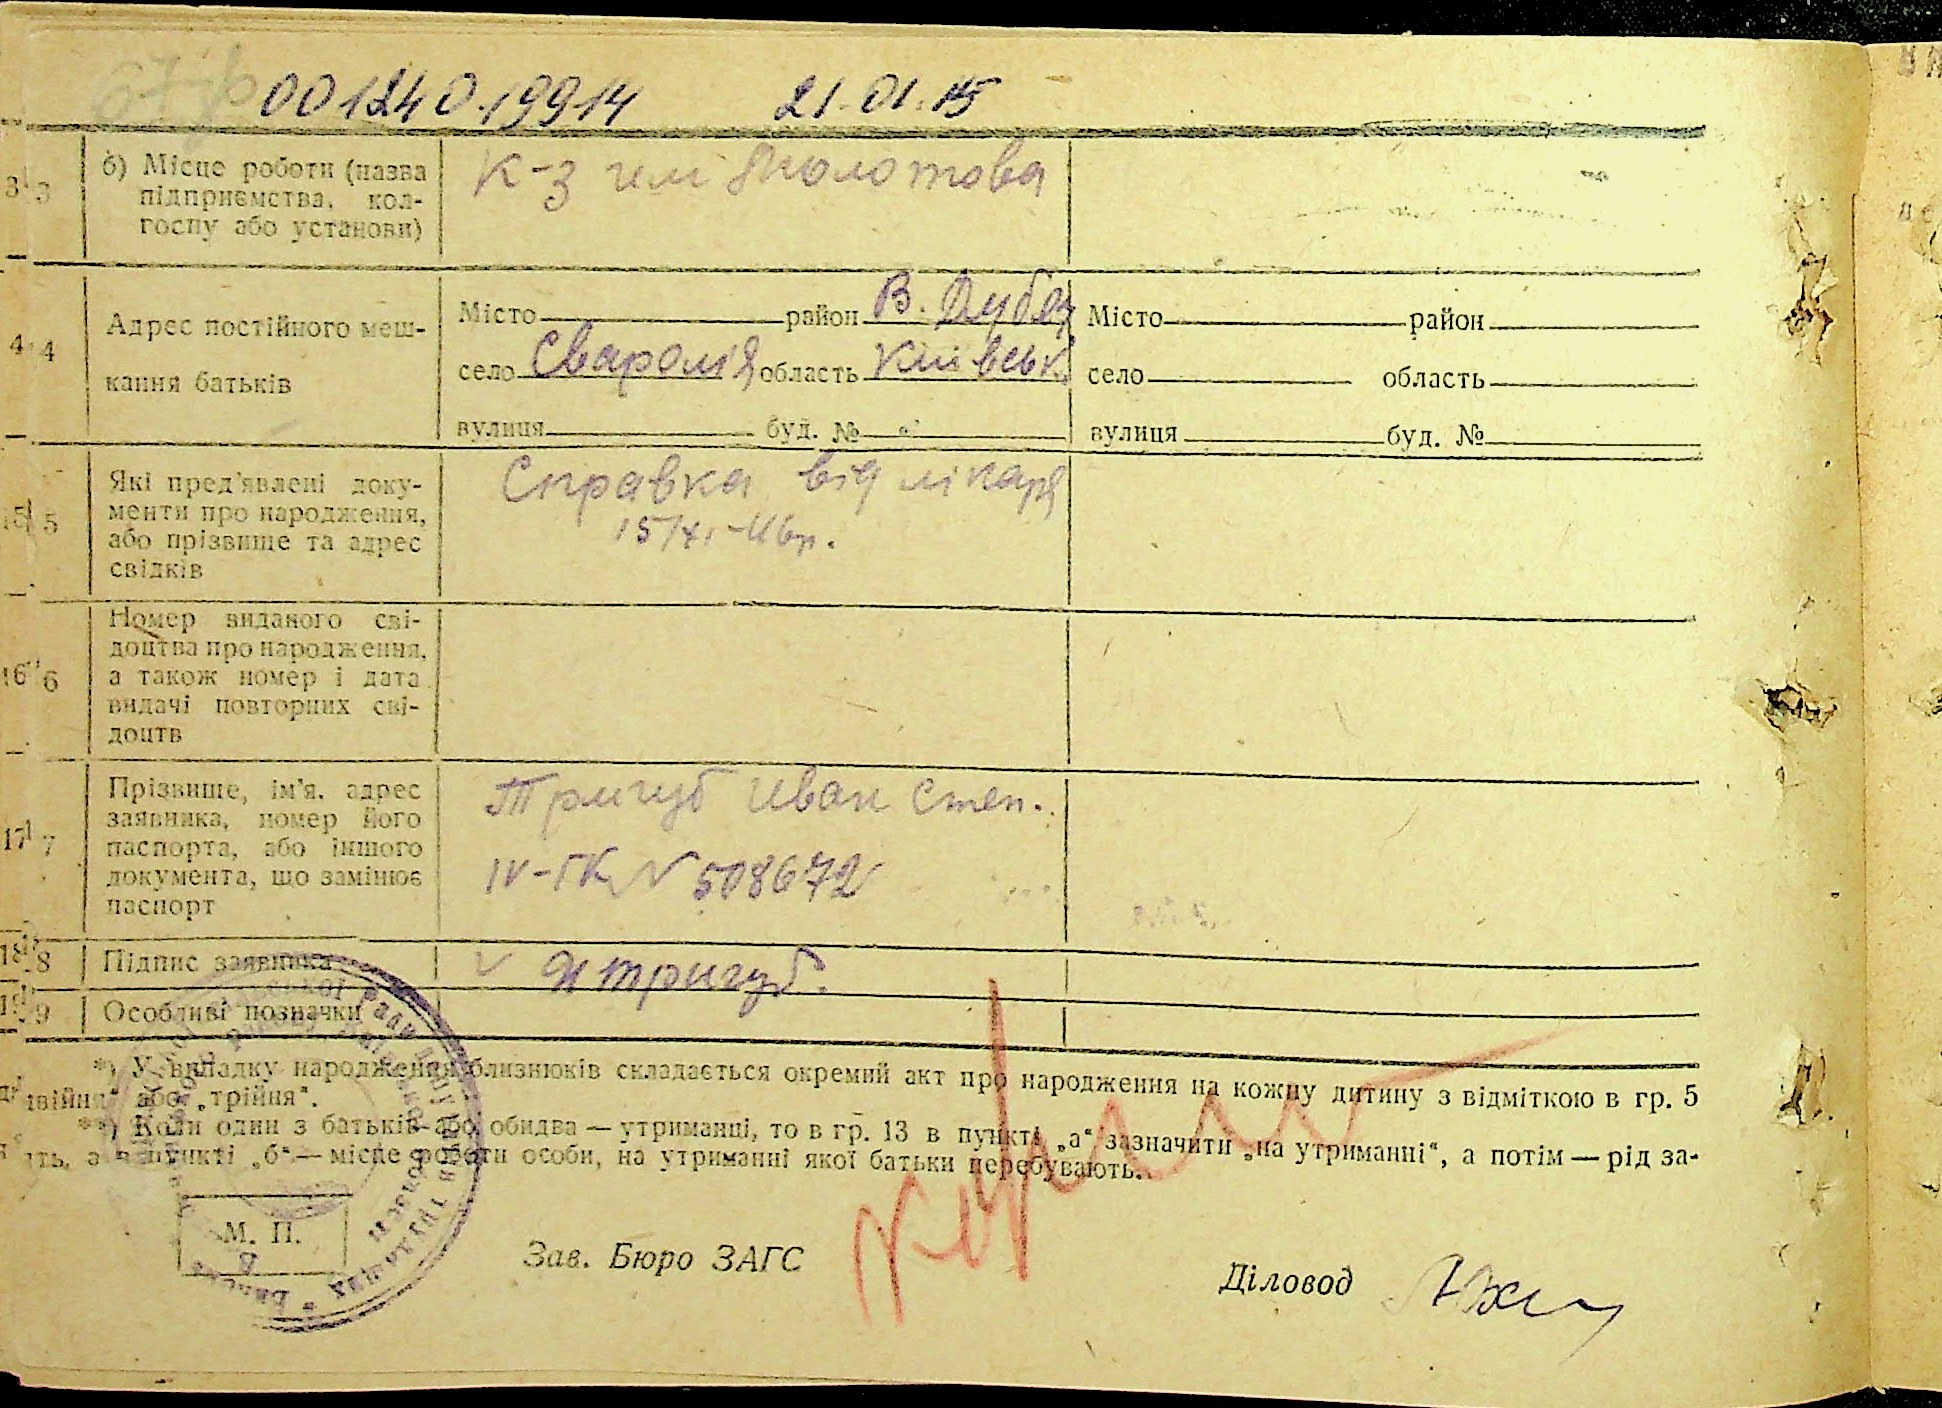 00124019914 21.01.15
3 б) Місце роботи (назва
підприємства, кол-
госпу або установи)
К-з им Молотова
4 Адрес постійного меш-
кання батьків
Місто район В. Дубеч
село Сваромʼя область Київськ.
вулиця буд. №
Місто район
село область
вулиця буд. №
5 Які пред'явлені доку-
менти про народження,
або прізвище та адрес
свідків
Справка від лікаря
6 Номер виданого сві-
доцтва про народження,
а також номер і дата
видачі повторних сві-
доцтв
17 7 Прізвище, ім'я, адрес
заявника, номер його
паспорта, або іншого
документа, що замінює
паспорт
Тригуб Иван Степ.
IV-ГК N 508672
18 8 Підпис заявника
И Тригуб.
19 9 Особливі позначки
*) У випадку народження близнюків складається окремий акт про народження на кожну дитину з відміткою в гр. 5
або „трійня“.
**) Коли один з батьків або обидва — утриманці, то в гр. 13 в пункті „а“ зазначити „на утриманні“, а потім — рід за-
в пункті „б“ — місце роботи особи, на утриманні якої батьки перебувають.
М. П.
Зав. Бюро ЗАГС
Діловод